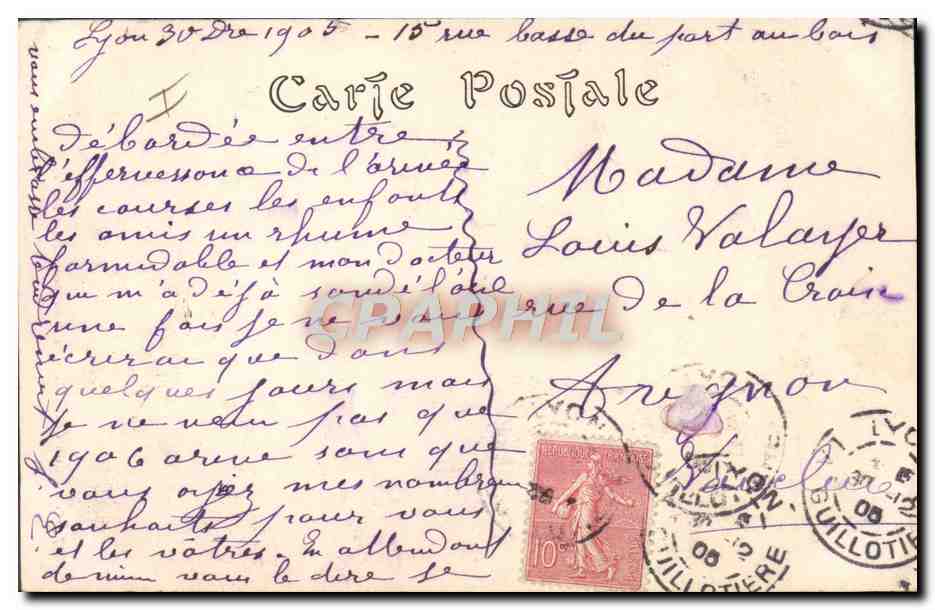 Lyon 30 Dre 1905 - 15 rue basse du port au bois
Carte Postale
débordée entre
l'effervessence de l'armée
les courses les enfants
les amis un rhume
formidable et mon docteur
qui m'a déjà sondé l'œil
une fois je ne vous
écrirai que dans
quelques jours mais
je ne veux pas que
1906 arrive sans que
vous ayez mes nombreux
souhaits pour vous
et les vôtres. En attendant
de mieux vous le dire je
vous embrasse tendrement
Madame
Louis Valayer
rue de la Croix
Avignon
Vaucluse
CPAPHIL
REPUBLIQUE FRANÇAISE
10c
LYON
GUILLOTIERE
LYON
GUILLOTIERE